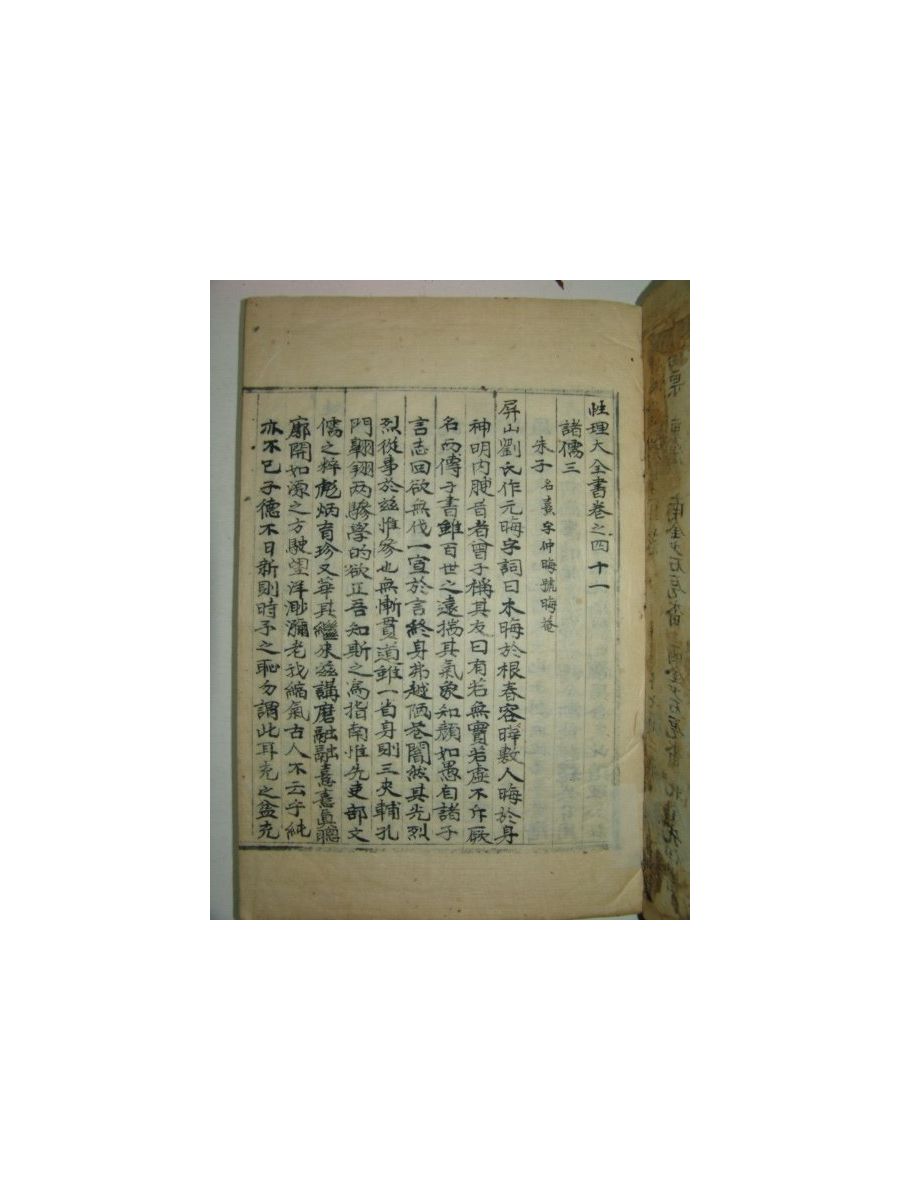 性理大全書卷之四十一
諸儒三
朱子 名熹字仲晦號晦菴
屏山劉氏作元晦字詞曰木晦於根春容曄敷人晦於身
神明内腴昔者曾子稱其友曰有若無實若虛不斥厥
名而傳于書雖百世之遠揣其氣象知顏如愚自諸子
言志回欲無伐一宣於言終身弗越陋巷闇然其光烈
烈從事於玆惟參也無慚貫道雖一省身則三夾輔孔
門翱翔兩驂學的欲正吾知斯之爲指南惟先吏部文
儒之粹彪炳育珍又華其繼來玆講磨融融熹熹眞聰
廓開如源之方駛望洋渺瀰老我縮氣古人不云乎純
亦不已子德不日新則時予之恥勿謂此耳充之益充